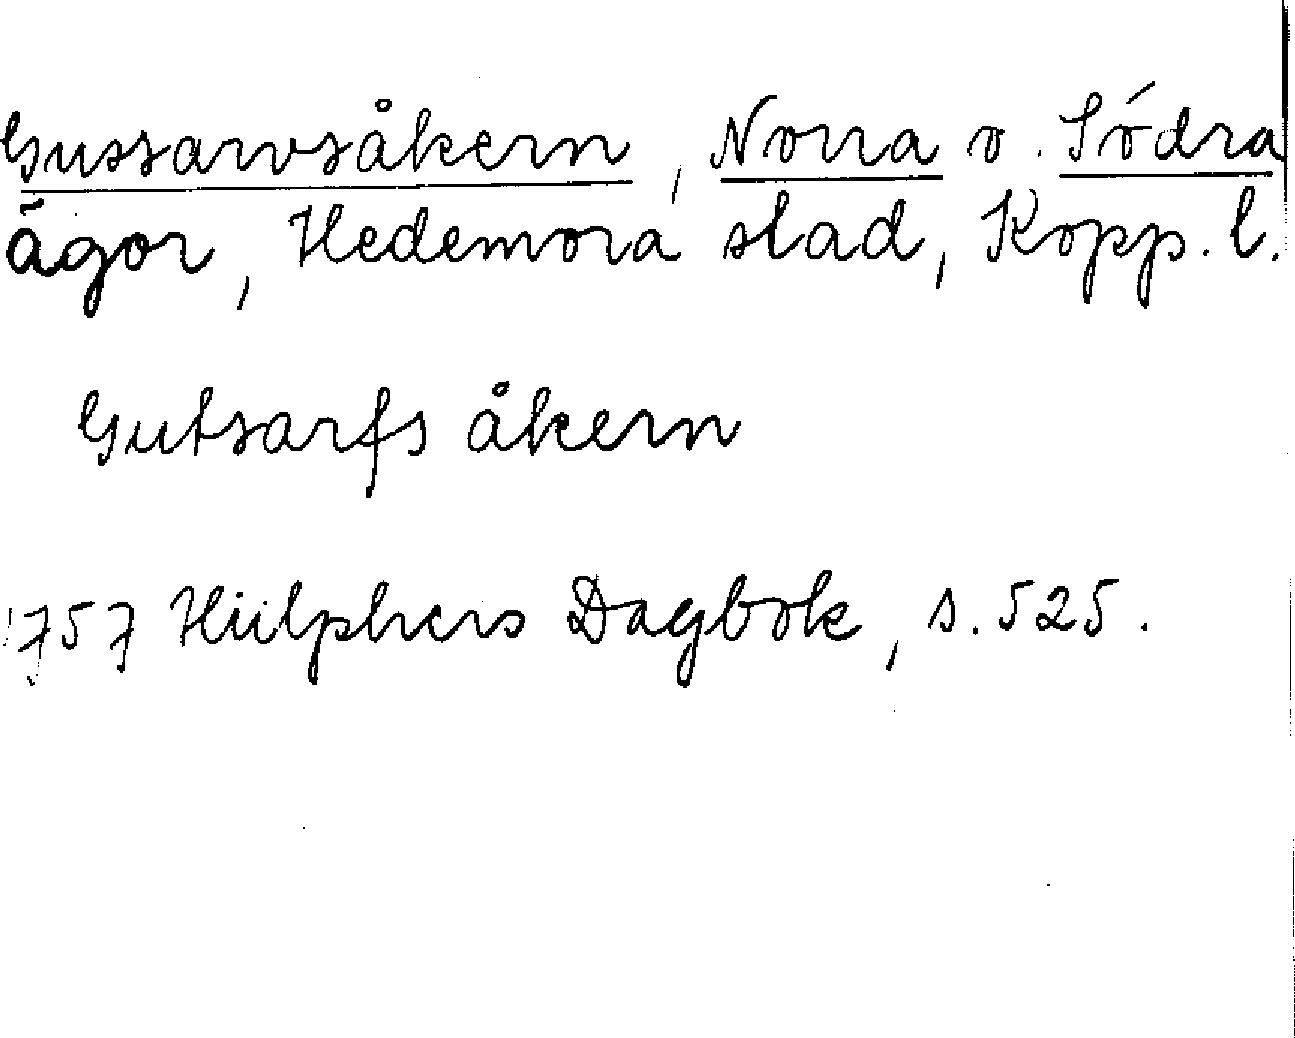 Gussarvsåkern, Norra o. Södra
ägor, Hedemora stad, Kopp. l.
Gutsarfs åkern
1757 Hülphers Dagbok, s. 525.